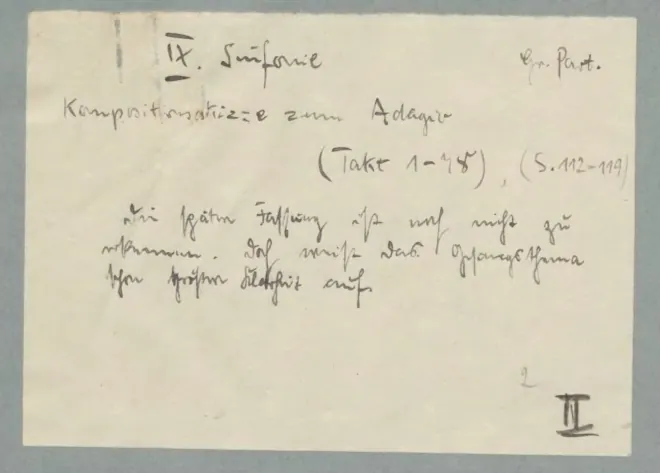 IX. Sinfonie Gr. Part.
Kompositionsskizze zum Adagio
(Takt 1-48), (S. 112-119)
Die spätere Fassung ist noch nicht zu
erkennen. Doch weist das Gesangsthema
schon größere Klarheit auf.
2
II